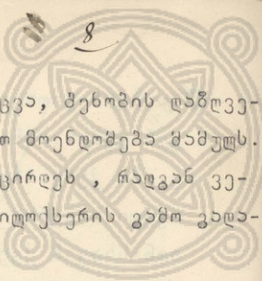 8
ცვა, შენობის დაზღვე-
თ მოენდომება მამულს.
ცირდეს , რადგან ვე-
ილოქსერის გამო გადა-